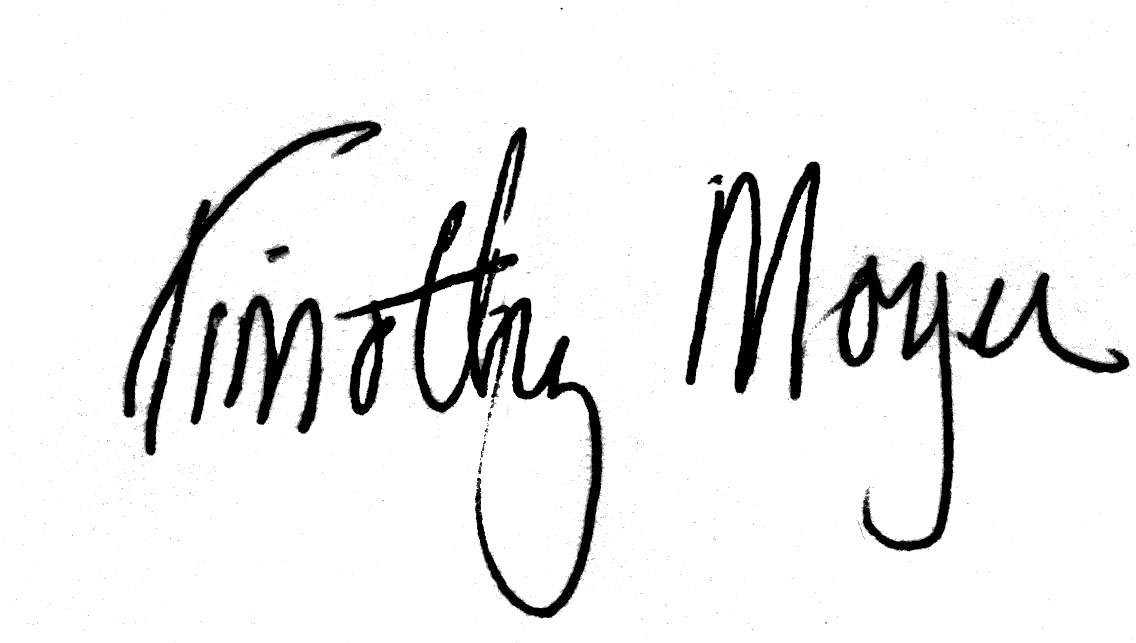 Timothy Moyer